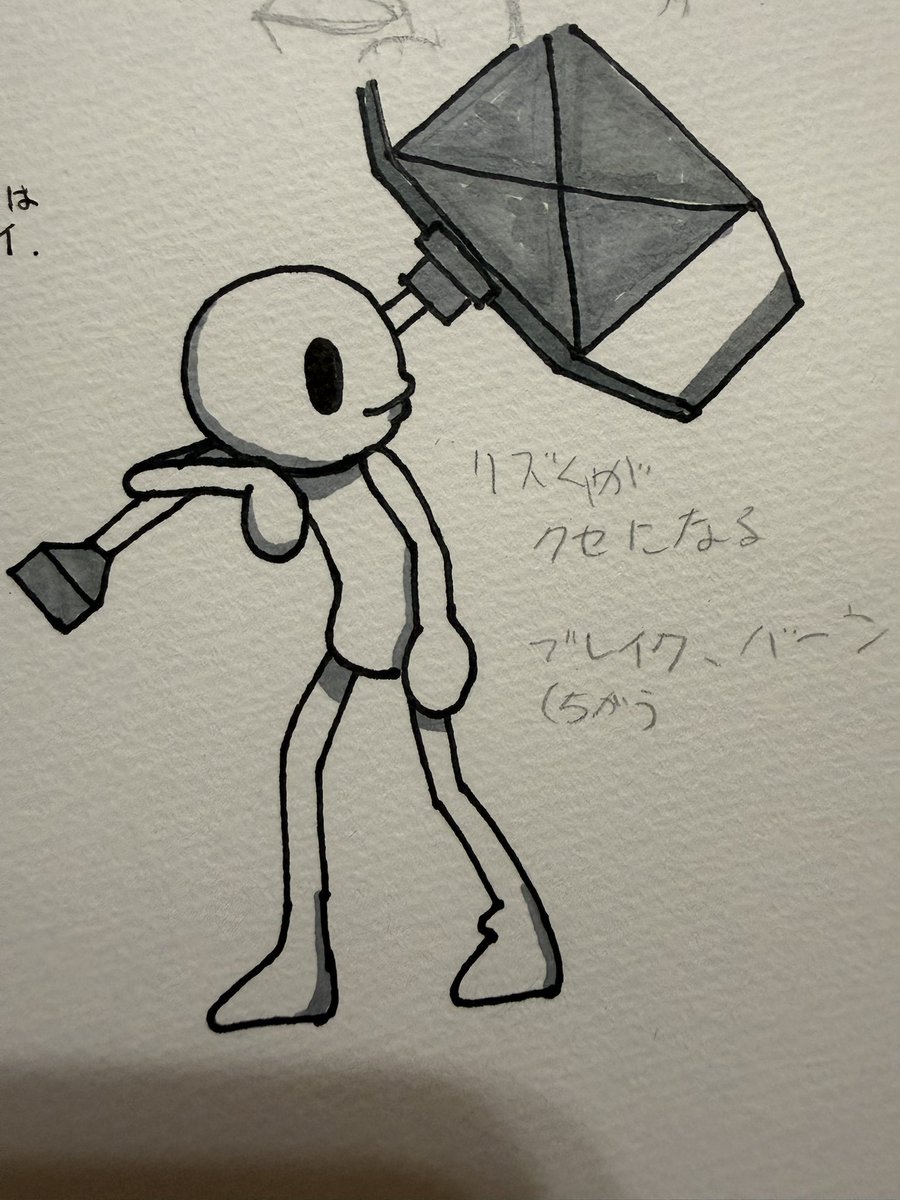 は
イ.
リズムが
クセになる
ブレイク、バーン
(ちがう